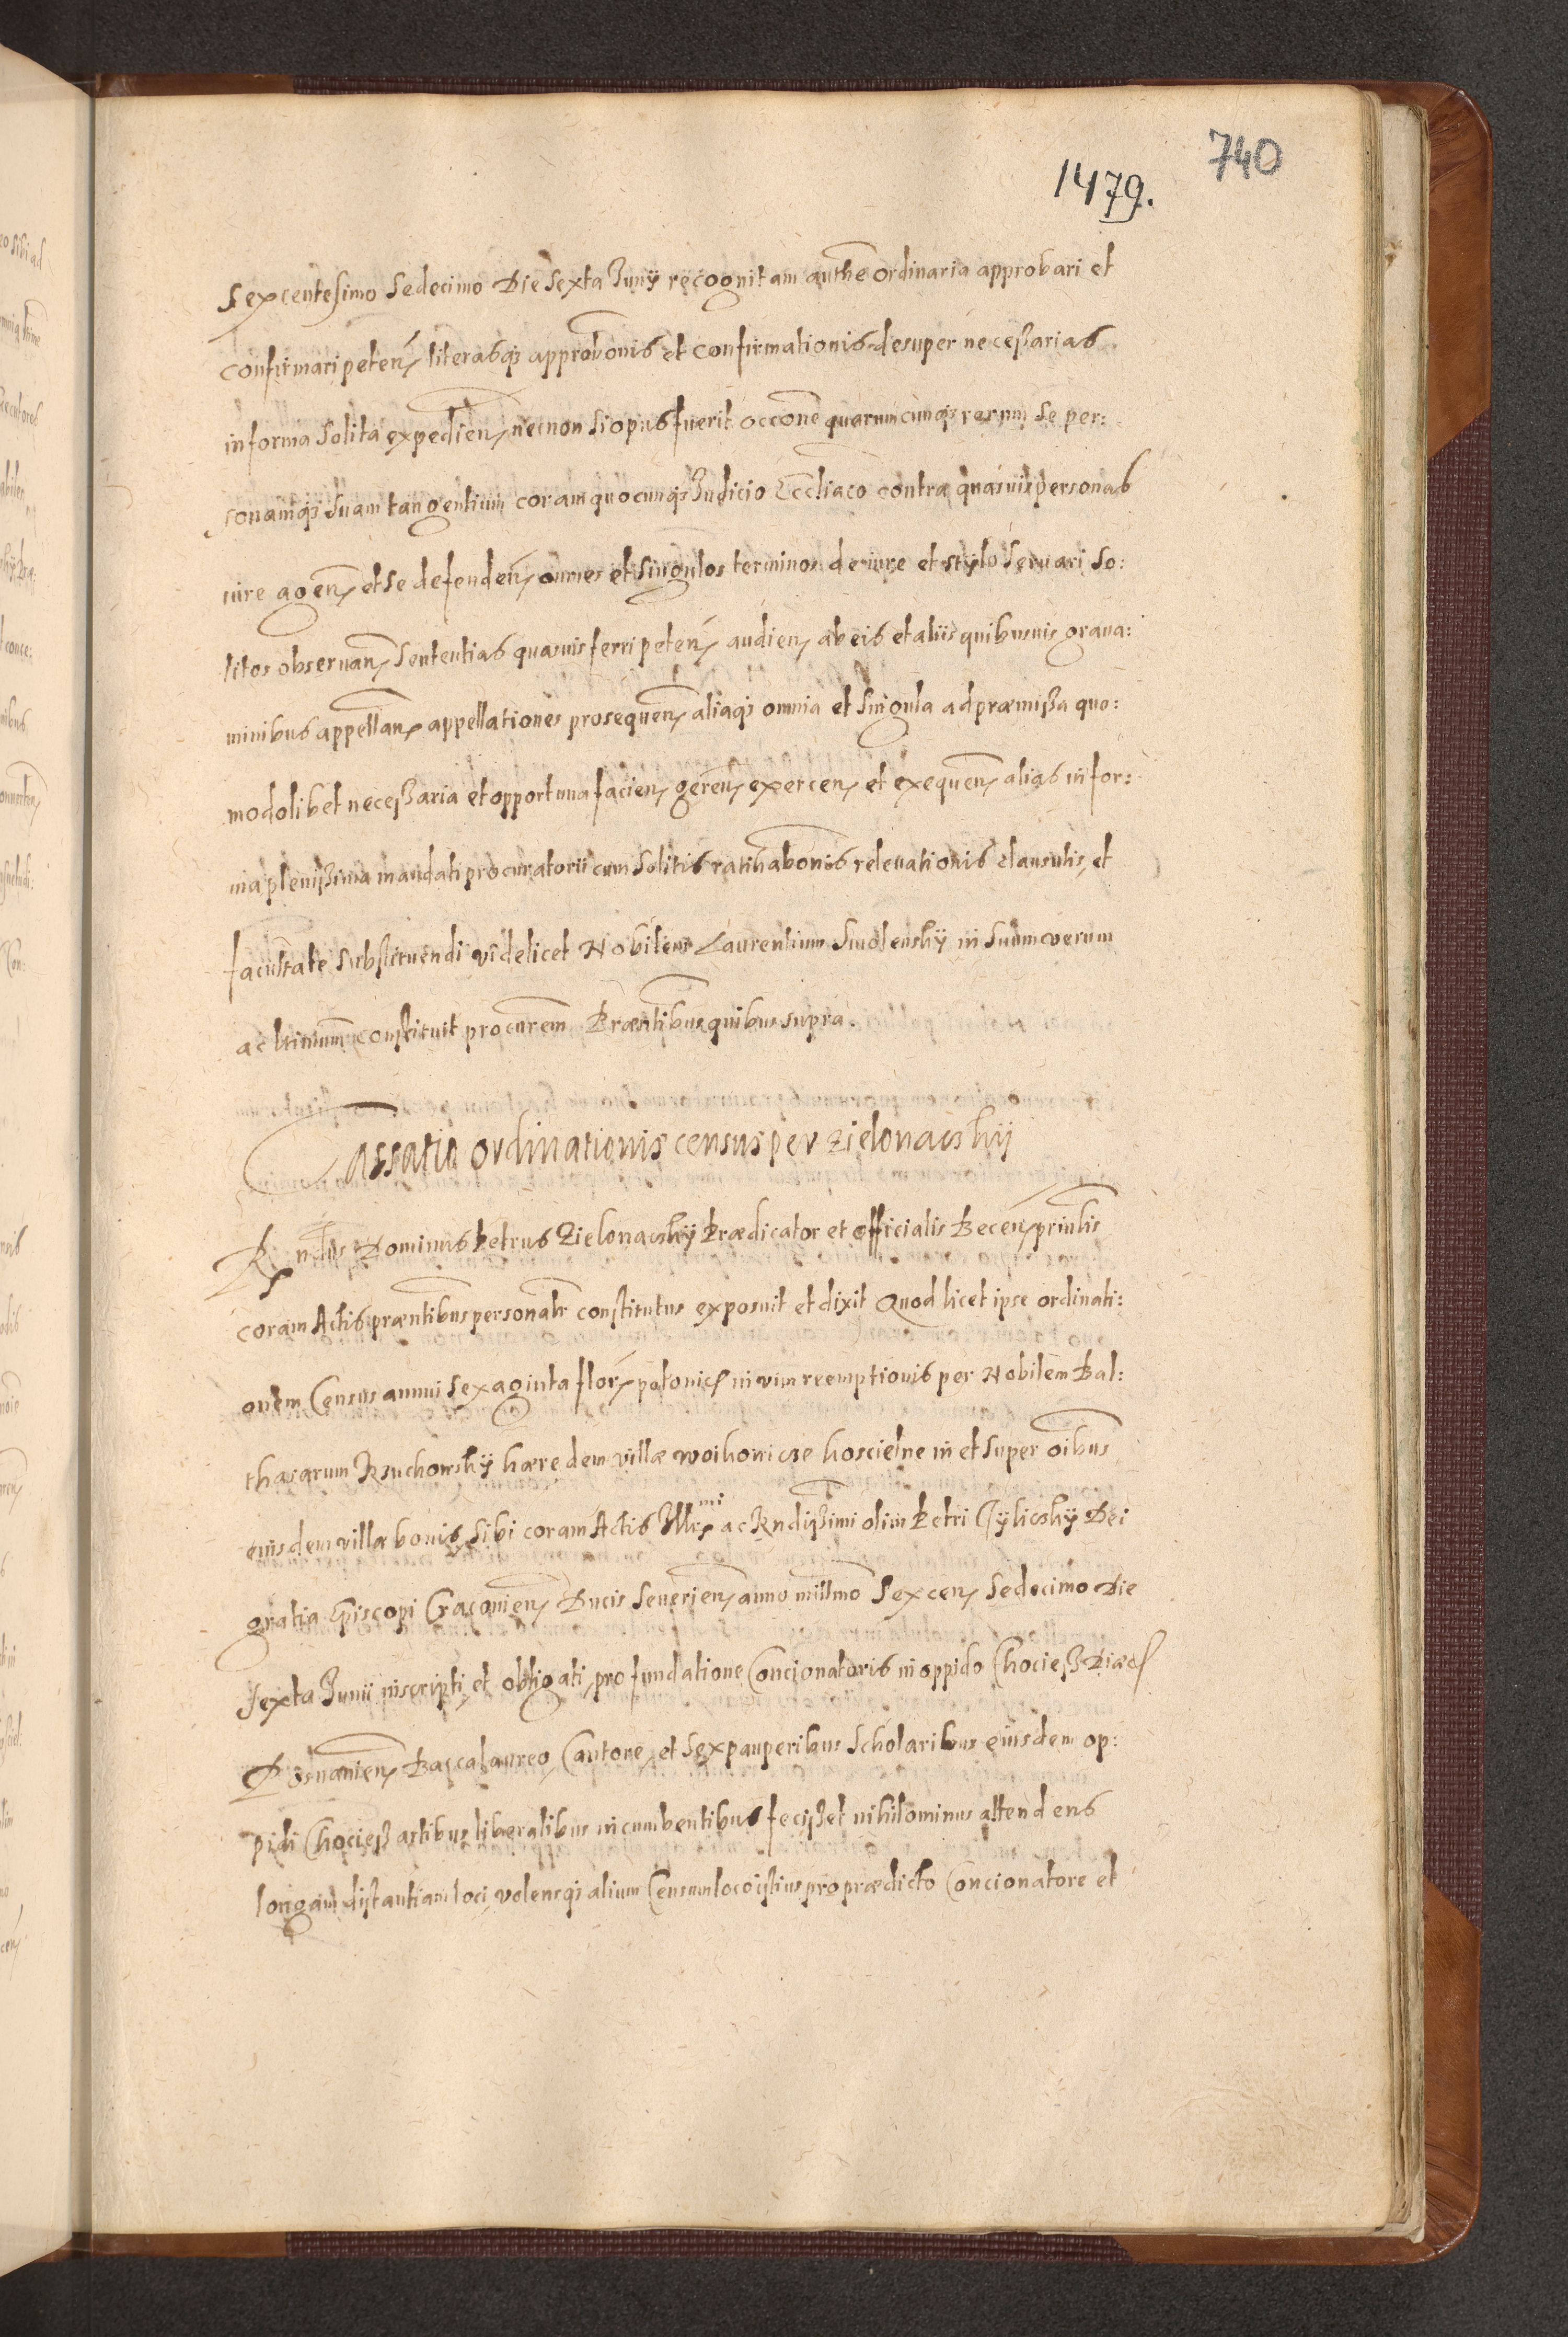 740
1479.
Sexcentesimo Sedecimo Die Sexta Junÿ recognitam authe ordinaria approbari et
confirmari peten. literasq3 approbonis et confirmationis desuper necessarias
in forma solita expedien. necnon si opus fuerit occone quarumcunq3 rerum se per:
sonamq3 suam tangentium coram quocunq3 Judicio Eccliaco contra quasuis personas
iure agen. et se defenden. omnes et singulos terminos de iure et stylo seruari so:
litos obseruan. sententias quasuis ferri peten. audien. ab eis et aliis quibusuis graua:
minibus appellan. appellationes prosequen. aliaq3 omnia et singula ad præmissa quo:
modolibet necessaria et opportuna facien. geren. exercen. et exequen. alias in for:
ma plenissima mandati procuratorii cum solitis ratihabonis releuationis clausulis, et
facultate substituendi videlicet Nobilem Laurentium Smolenskÿ in suum verum
ac ltimum constituit procurem Præntibus quibus supra.
Cassatio ordinationis census per Zielonaczkij
Rndus Dominus Petrus Zielonaczkÿ Prædicator et officialis Becen. priulis
coram Actis præntibus personalr constitutus exposuit et dixit Quod licet ipse ordinati:
onem Census annui sexaginta flor. polonic in vim reemptionis per Nobilem Bal:
thasarum Rsuchowskÿ hæredem villæ woikowicze koscielne in et super oibus
eiusdem villæ bonis, sibi coram Actis Illrmi ac Rndissimi olim Petri Tÿliczkÿ Dei
gratia Episcopi Cracouien. Ducis Seuerien. anno millmo Sexcen. Sedecimo Die
sexta Junii inscripti, et obligati, pro fundatione Concionatoris in oppido Chociess Diæc
Posnanien. Baccalaureo, Cantore, et sex pauperibus Scholaribus eiusdem op:
pidi Chociess artibus liberalibus incumbentibus fecisset nihilominus attendens
longam distantiam loci, volensq3 alium Censum loco istius pro prædicto Concionatore et